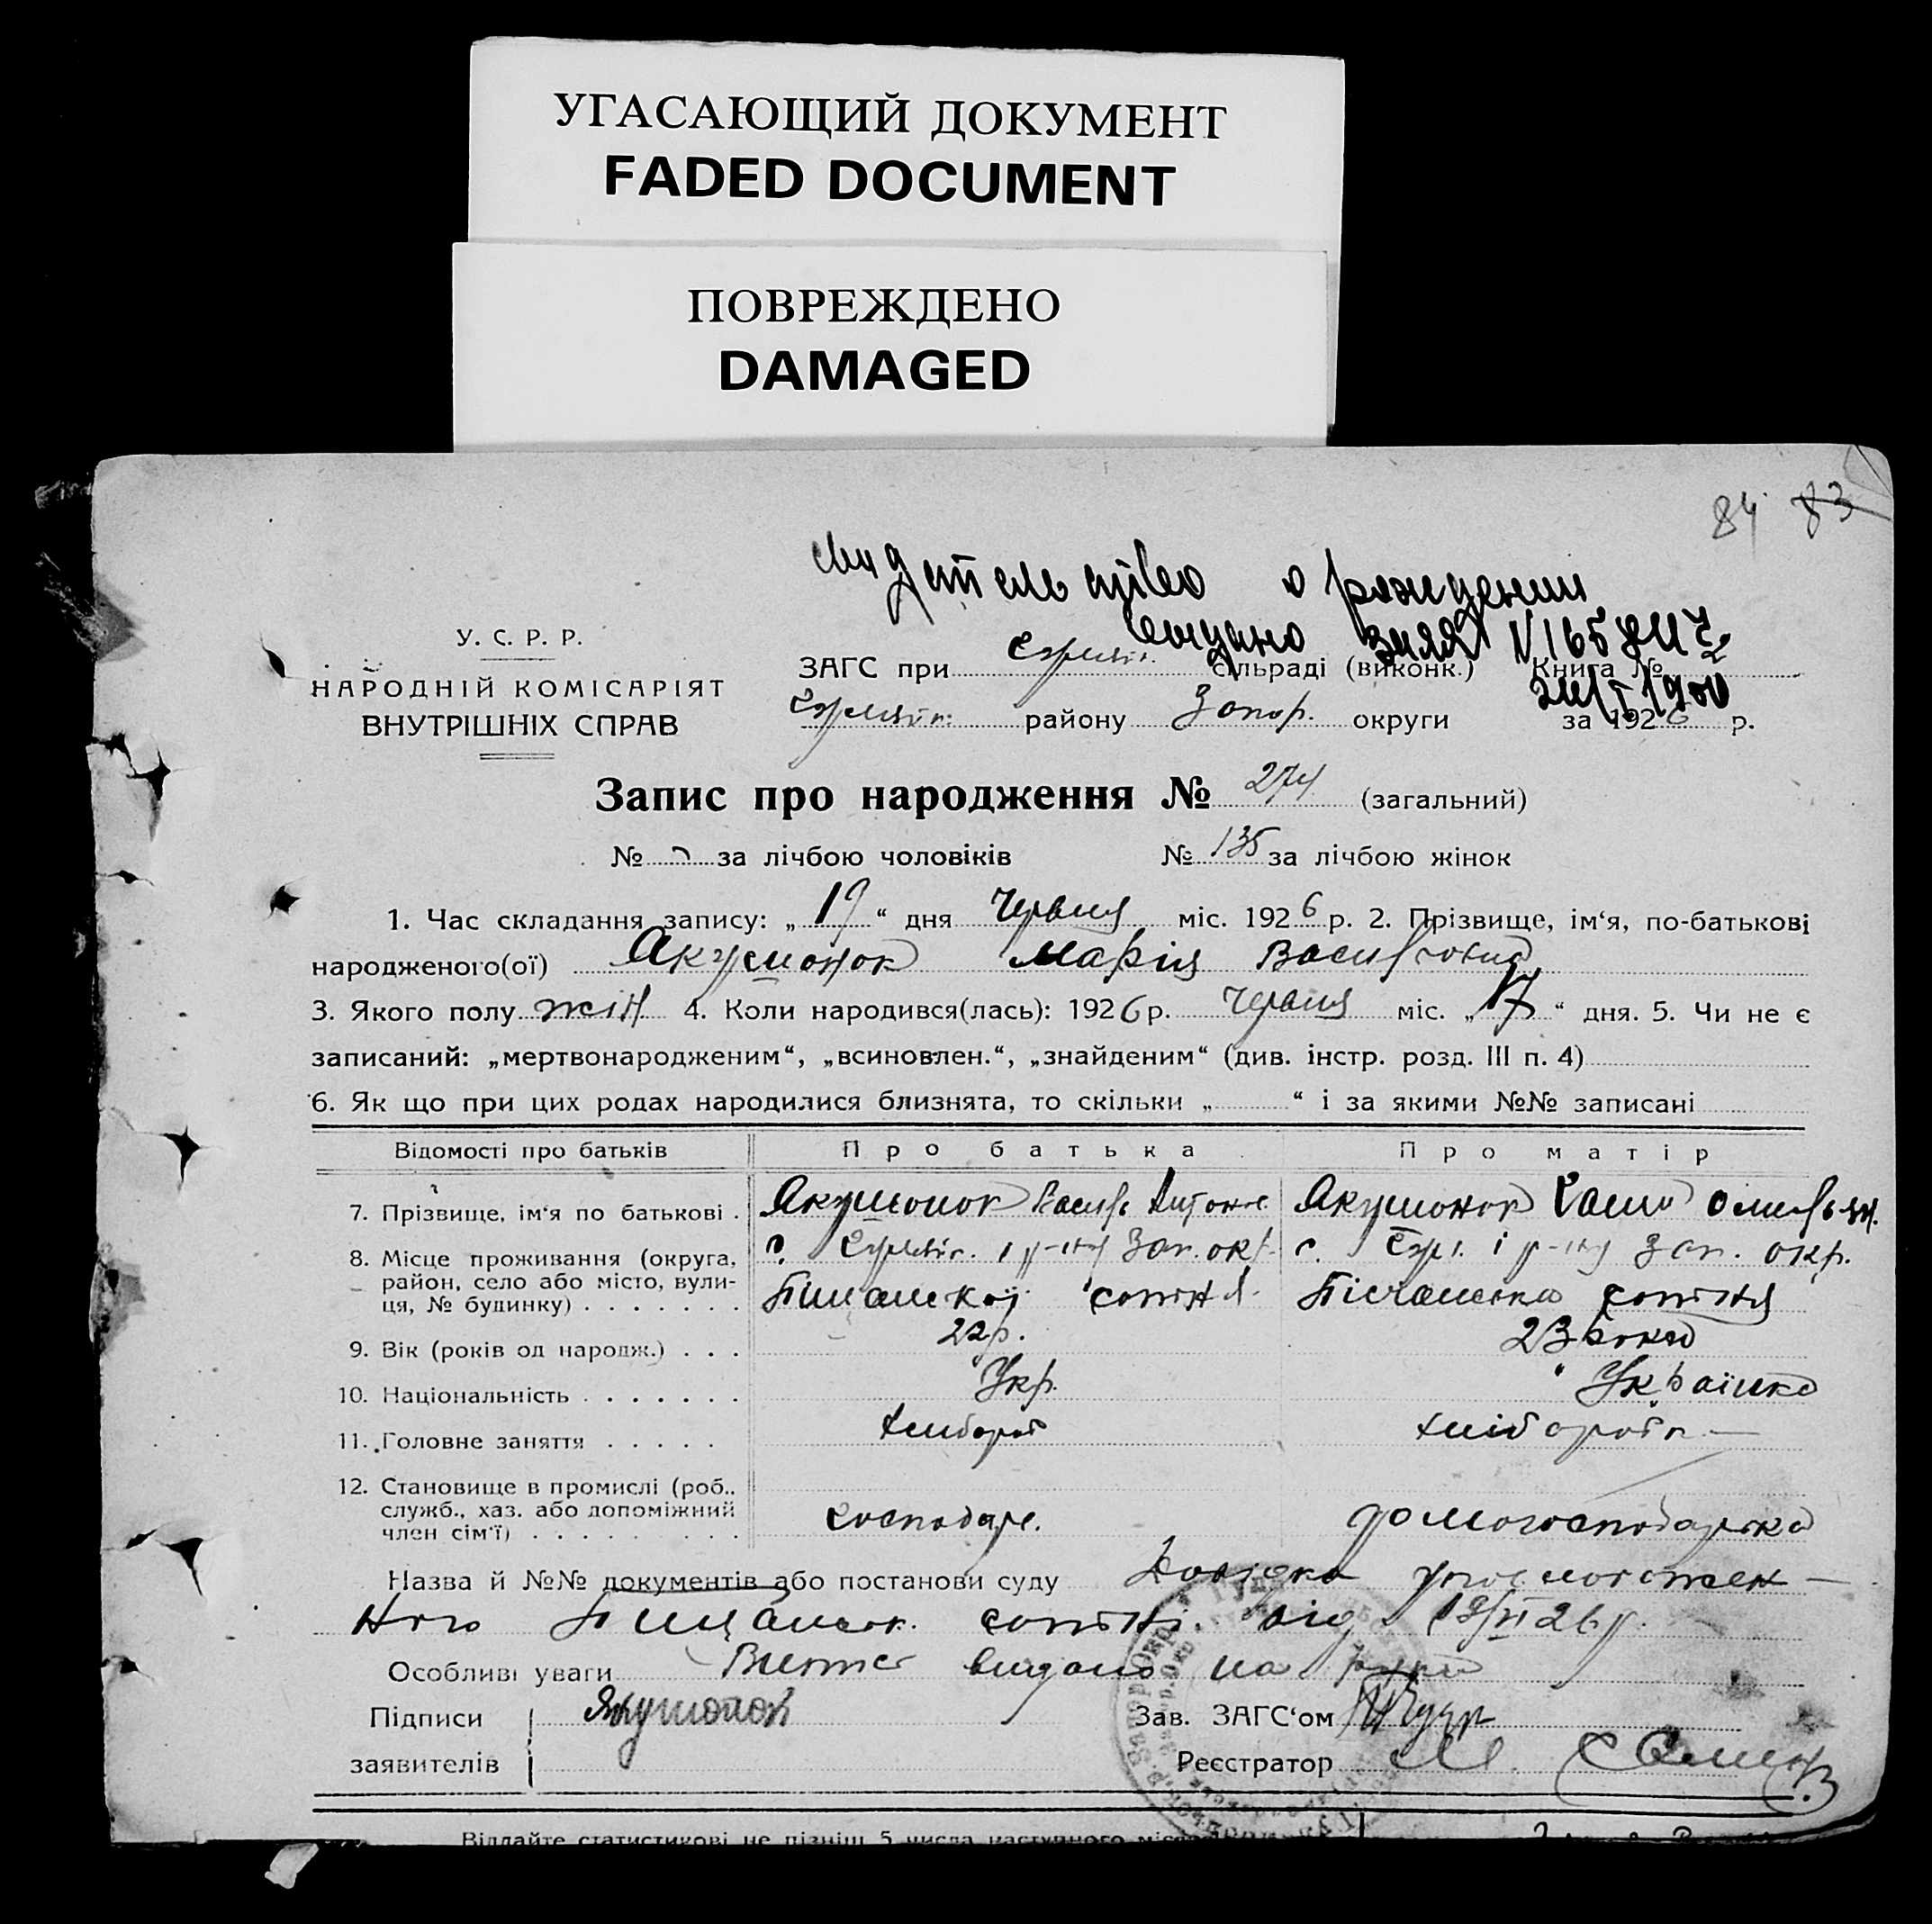 УГАСАЮЩИЙ ДОКУМЕНТ
FADED DOCUMENT
ПОВРЕЖДЕНО
DAMAGED
84 83
о рождении
выдано
У. С. Р. Р.
НАРОДНІЙ КОМІСАРІЯТ
ВНУТРІШНІХ СПРАВ
ЗАГС при сільраді (виконк.) Книга №
району Запор. округи за 1926 р.
Запис про народження № 274 (загальний)
№ за лічбою чоловіків № 135 за лічбою жінок
1. Час складання запису: „ 19 “ дня Червня міс. 1926 р. 2. Прізвище, ім‘я, по-батькові
народженого(ої) Якушонок Марія Василівна
3. Якого полу жін 4. Коли народився(лась): 1926 р. Червня міс. „ 17 “ дня. 5. Чи не є
записаний: „мертвонародженим“, „всиновлен.“, „знайденим“ (див. інстр. розд. III п. 4)
6. Як що при цих родах народилися близнята, то скільки „ “ і за якими №№ записані
Відомості про батьків Про батька Про матір
7. Прізвище, ім‘я по батькові . Якушонок Василь Антонов Якушонок
8. Місце проживання (округа, с. р-ну Зап. окр. с. р-ну Зап. окр.
район, село або місто, вули-
ця, № будинку) . . . . . . . сотня сотня
9. Вік (років од народж.) . . . 22 р. 23 роки
10. Національність . . . . . . . Укр. Українка
11. Головне заняття . . . . . хлібороб хлібороб
12. Становище в промислі (роб.,
служб., хаз. або допоміжний
член сім‘ї) . . . . . . . . . господар. домогосподарка
Назва й №№ документів або постанови суду Довідка уповноважен-
ного Піщанськ. сотні. від 19/VI 26 р.
Особливі уваги Витяг видано на руки
Підписи Якушонок Зав. ЗАГС‘ом
заявителів Реєстратор
Віддайте статистикові не пізніш 5 числа наступного